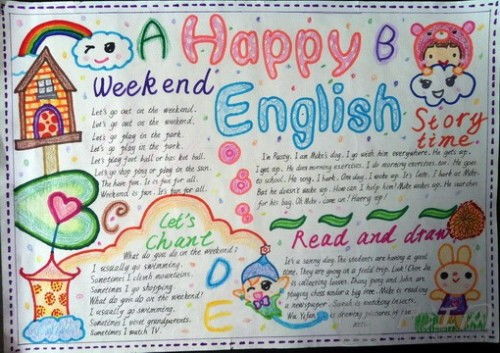 A Happy B
English
Weekend
Let's go out on the weekend.
Let's go out on the weekend.
Let's go play in the park.
Let's go play in the park.
Let's play foot ball or bas ket ball.
Let's go shop ping or play in the sun.
The have fun. It is fun for all.
Weekend is fun. It's fun for all.
Story
time
I'm Pussy. I am Mike's dog. I go with him everywhere. He gets up.
I get up. He does morning exercises. I do morning exercises too. He goes
to school. He sang, I bark. One day, I woke up. It's late. I bark at Mike.
But he doesn't wake up. How can I help him? Mike wakes up. He searches
for his bag. Oh Mike, come on! Hurry up!
C
Let's
Chant
What do you do on the weekend?
I usually go swimming.
Sometimes I climb mountains.
Sometimes I go shopping
What do you do on the weekend?
I usually go swimming.
Sometimes I visit grandparents.
Sometimes I watch TV.
D
E
Read and draw
It's a sunny day. The students are having a good
time. They are going on a field trip. Look! Chen Jie
is collecting leaves. Zhang Peng and John are
playing chess under a big tree. Mike is reading
a newspaper. Sarah is watching insects.
Wu Yifan is drawing pictures of